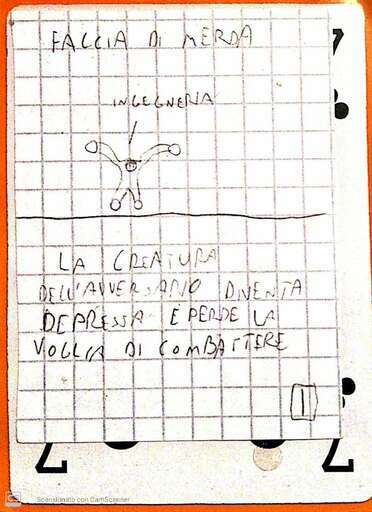 FACCIA DI MERDA
INGEGNERIA
LA CREATURA
DELL'AVVERSARIO DIVENTA
DEPRESSA E PERDE LA
VOGLIA DI COMBATTERE
1
7
7
7
CS Scansionato con CamScanner